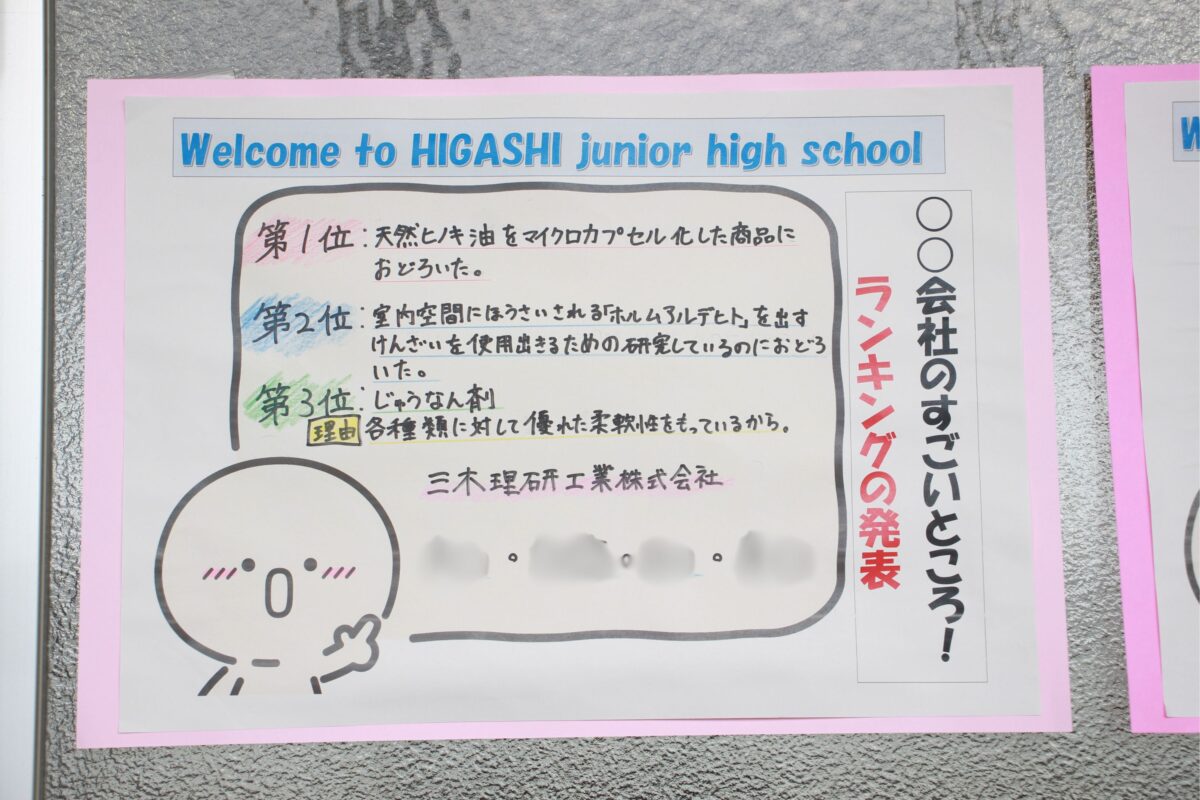 Welcome to HIGASHI junior high school
○○会社のすごいところ!
ランキングの発表
第1位:天然ヒノキ油をマイクロカプセル化した商品に
おどろいた。
第2位:室内空間にほうさいされる「ホルムアルデヒト」を出す
けんざいを使用出きるための研究しているのにおどろ
いた。
第3位:じゅうなん剤
理由 各種類に対して優れた柔軟性をもっているから。
三木理研工業株式会社
W